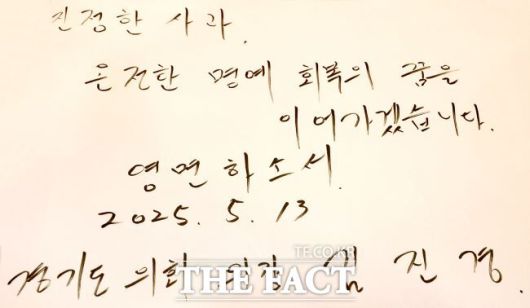 진정한 사과.
온전한 명예 회복의 꿈을
이어가겠습니다.
영면하소서.
2025. 5. 13
경기도의회 의장 김 진 경.
TF.CO.KR
THE FACT